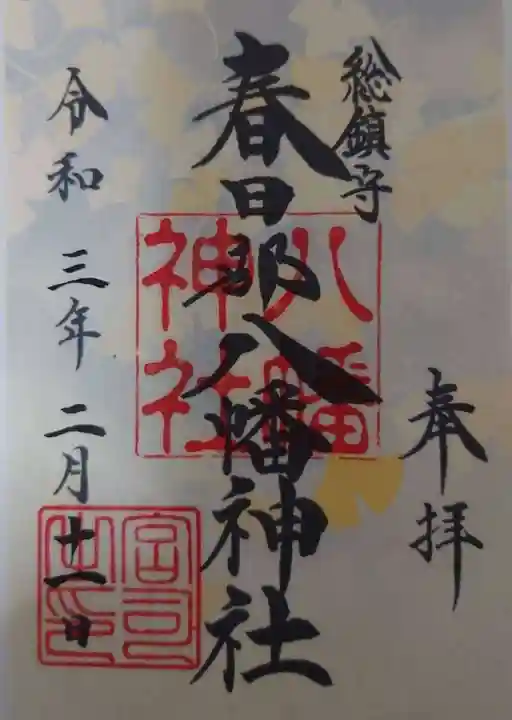 奉拝
総鎮守
春日部八幡神社
令和三年二月十一日
八幡
神社
宮司
之印